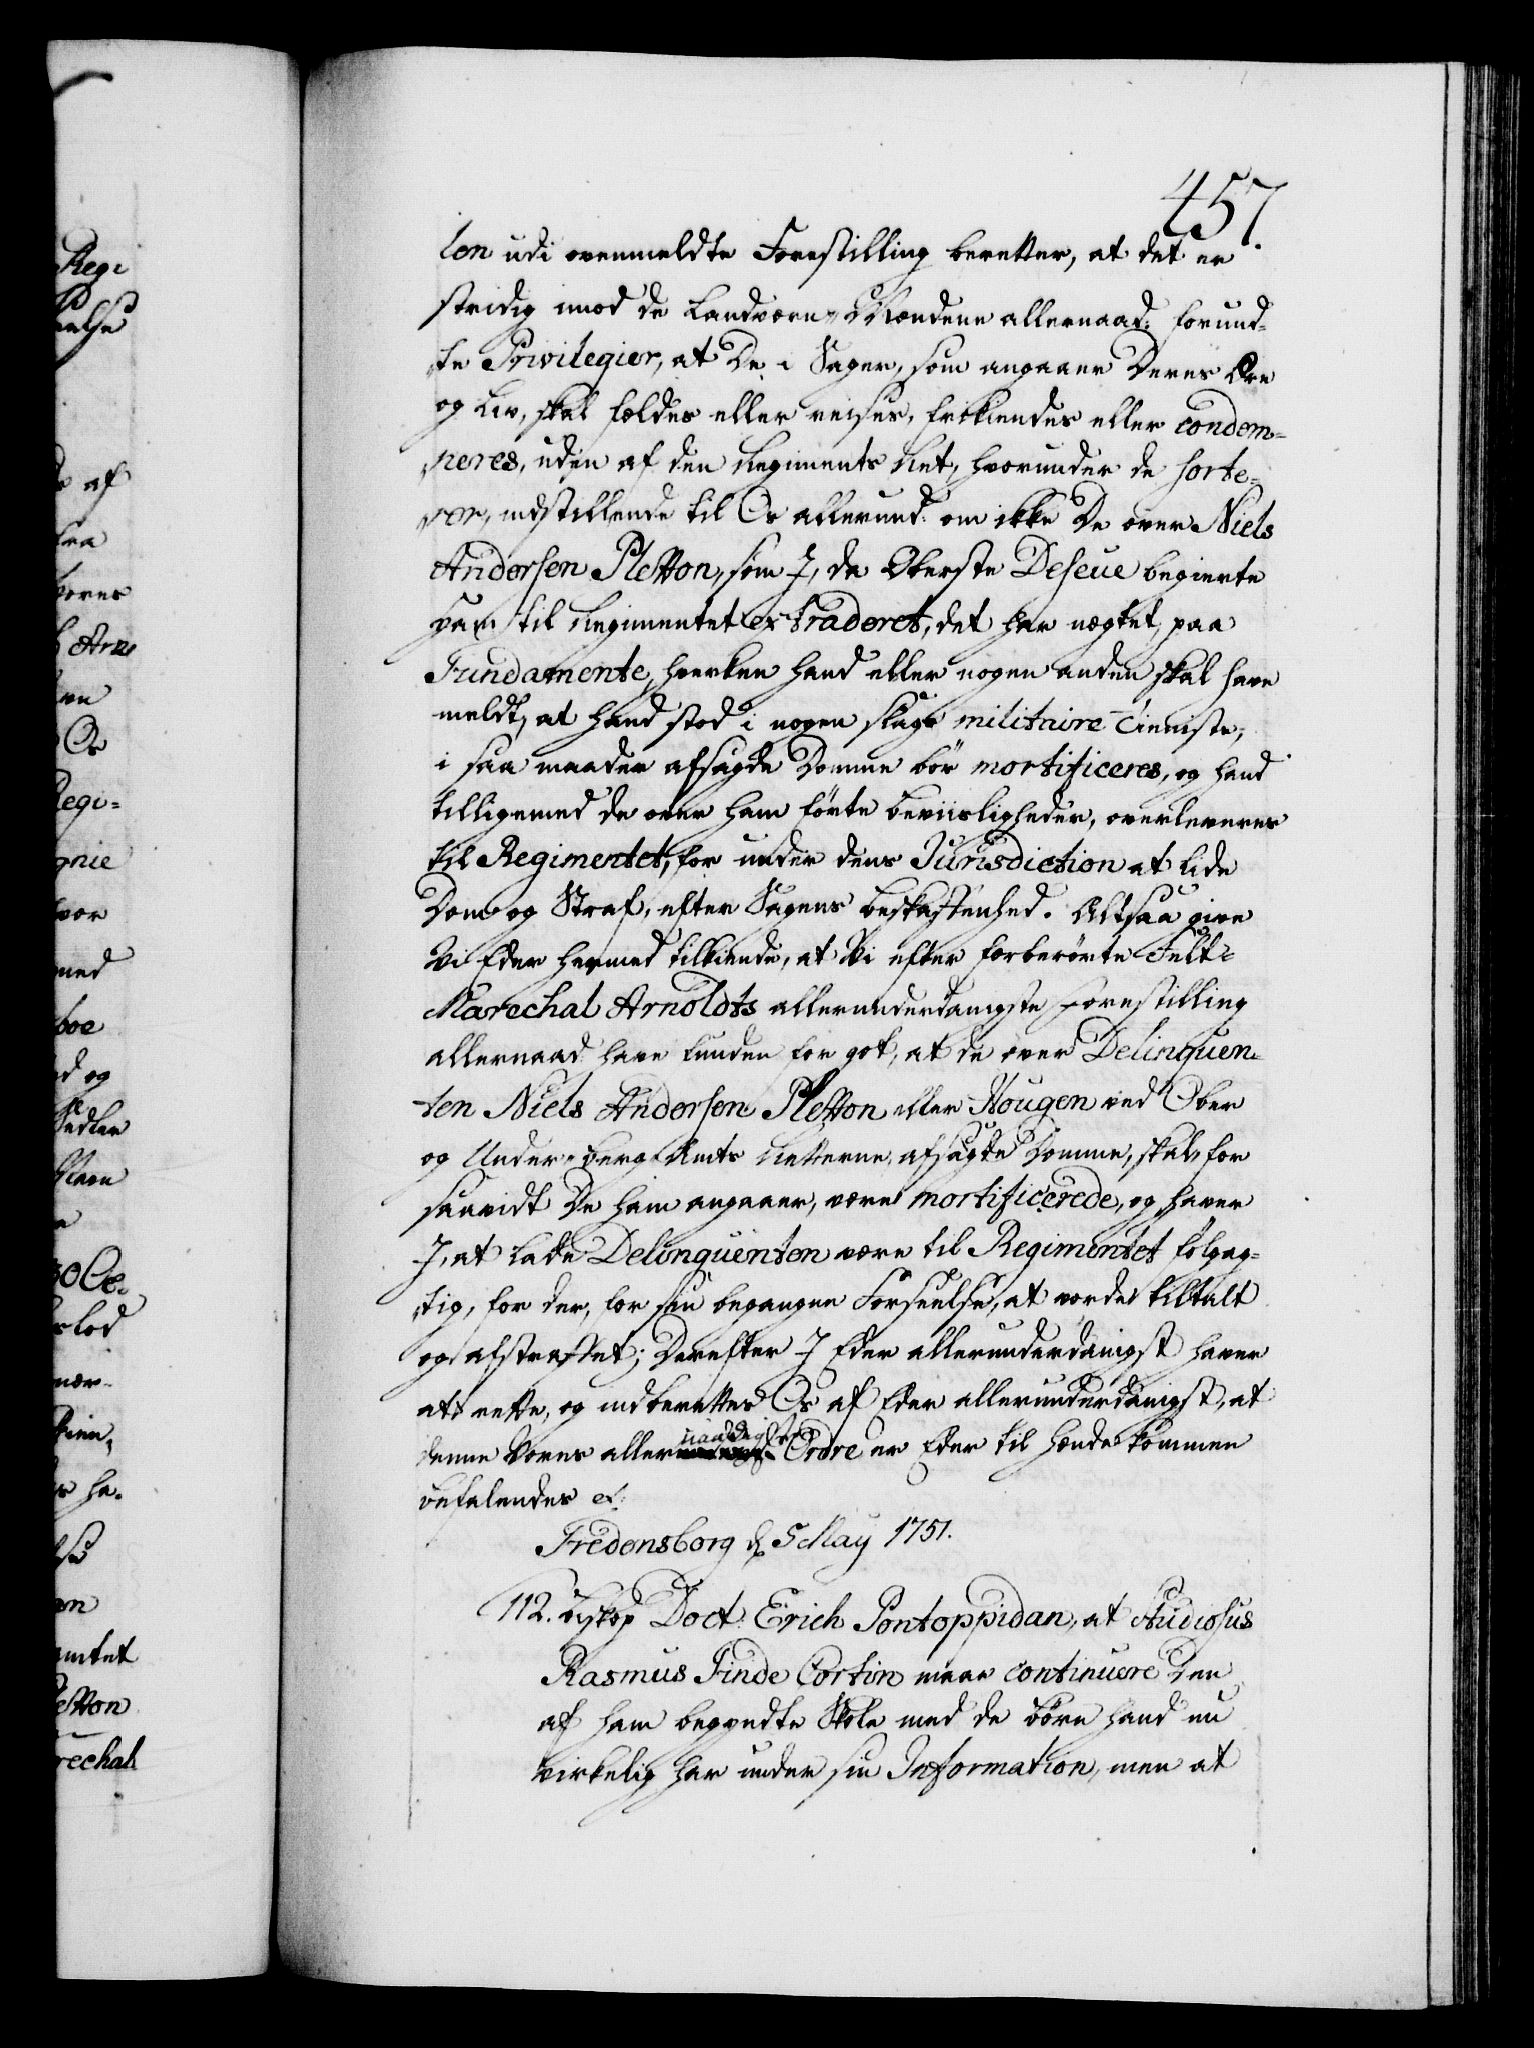 457.
len udi ovenmeldte Forestilling beretter, at det er
stridig imod de Landværn-Mændene allernaad: forund-
te Privilegier, at De i Sager, som angaaer Deres Ære
og Liv, skal fældes eller reises, frikiendes eller condem-
neres, uden af den Regiments Ret, hvorunder de sorte-
rer, indstillende til Os allerund: om ikke De over Niels
Andersen Pletten, som I, da Oberste Deseue begierte
ham til Regimentet extraderet, det har nægtet, paa
Fundamente, hverken hand eller nogen anden skal have
meldt, at hand stod i nogen slags militaire Tieniste,
i saa maader afsagde Domme bör mortificeres, og hand
tilligemed de over ham förte beviisligheder, overleveres
til Regimentet, for under dens Jurisdiction at lide
Dom og Straf, efter Sagens beskaffenhed. Altsaa give
Vi Eder hermed tilkiende, at Vi efter forberörte Felt-
Marechal Arnoldts allerunderdanigste Forestilling
allernaad: have funden for got, at de over Delinquen-
ten Niels Andersen Pletten eller Hougen ved Ober
og Under-berg Amts Retterne, afsagde Domme, skal, for
saavidt De ham angaaer, være mortificerede, og haver
I, at lade Delinquenten være til Regimentet fölgag-
tig, for der, for sin begangne Forseelse, at vorde tiltalt
og afstraffet; Derefter I Eder allerunderdanigst haver
at rette, og indberettes Os af Eder allerunderdanigst, at
denne Vores allernaadigste Ordre er Eder til hænde kommen
befalendes etc:
Fredensborg d. 5 May 1751.
112. Biskop Doct: Erich Pontoppidan, at Studiosus
Rasmus Finde Cortin maae continuere den
af ham begyndte Skole med de börn hand nu
virkelig har under sin Information, men at